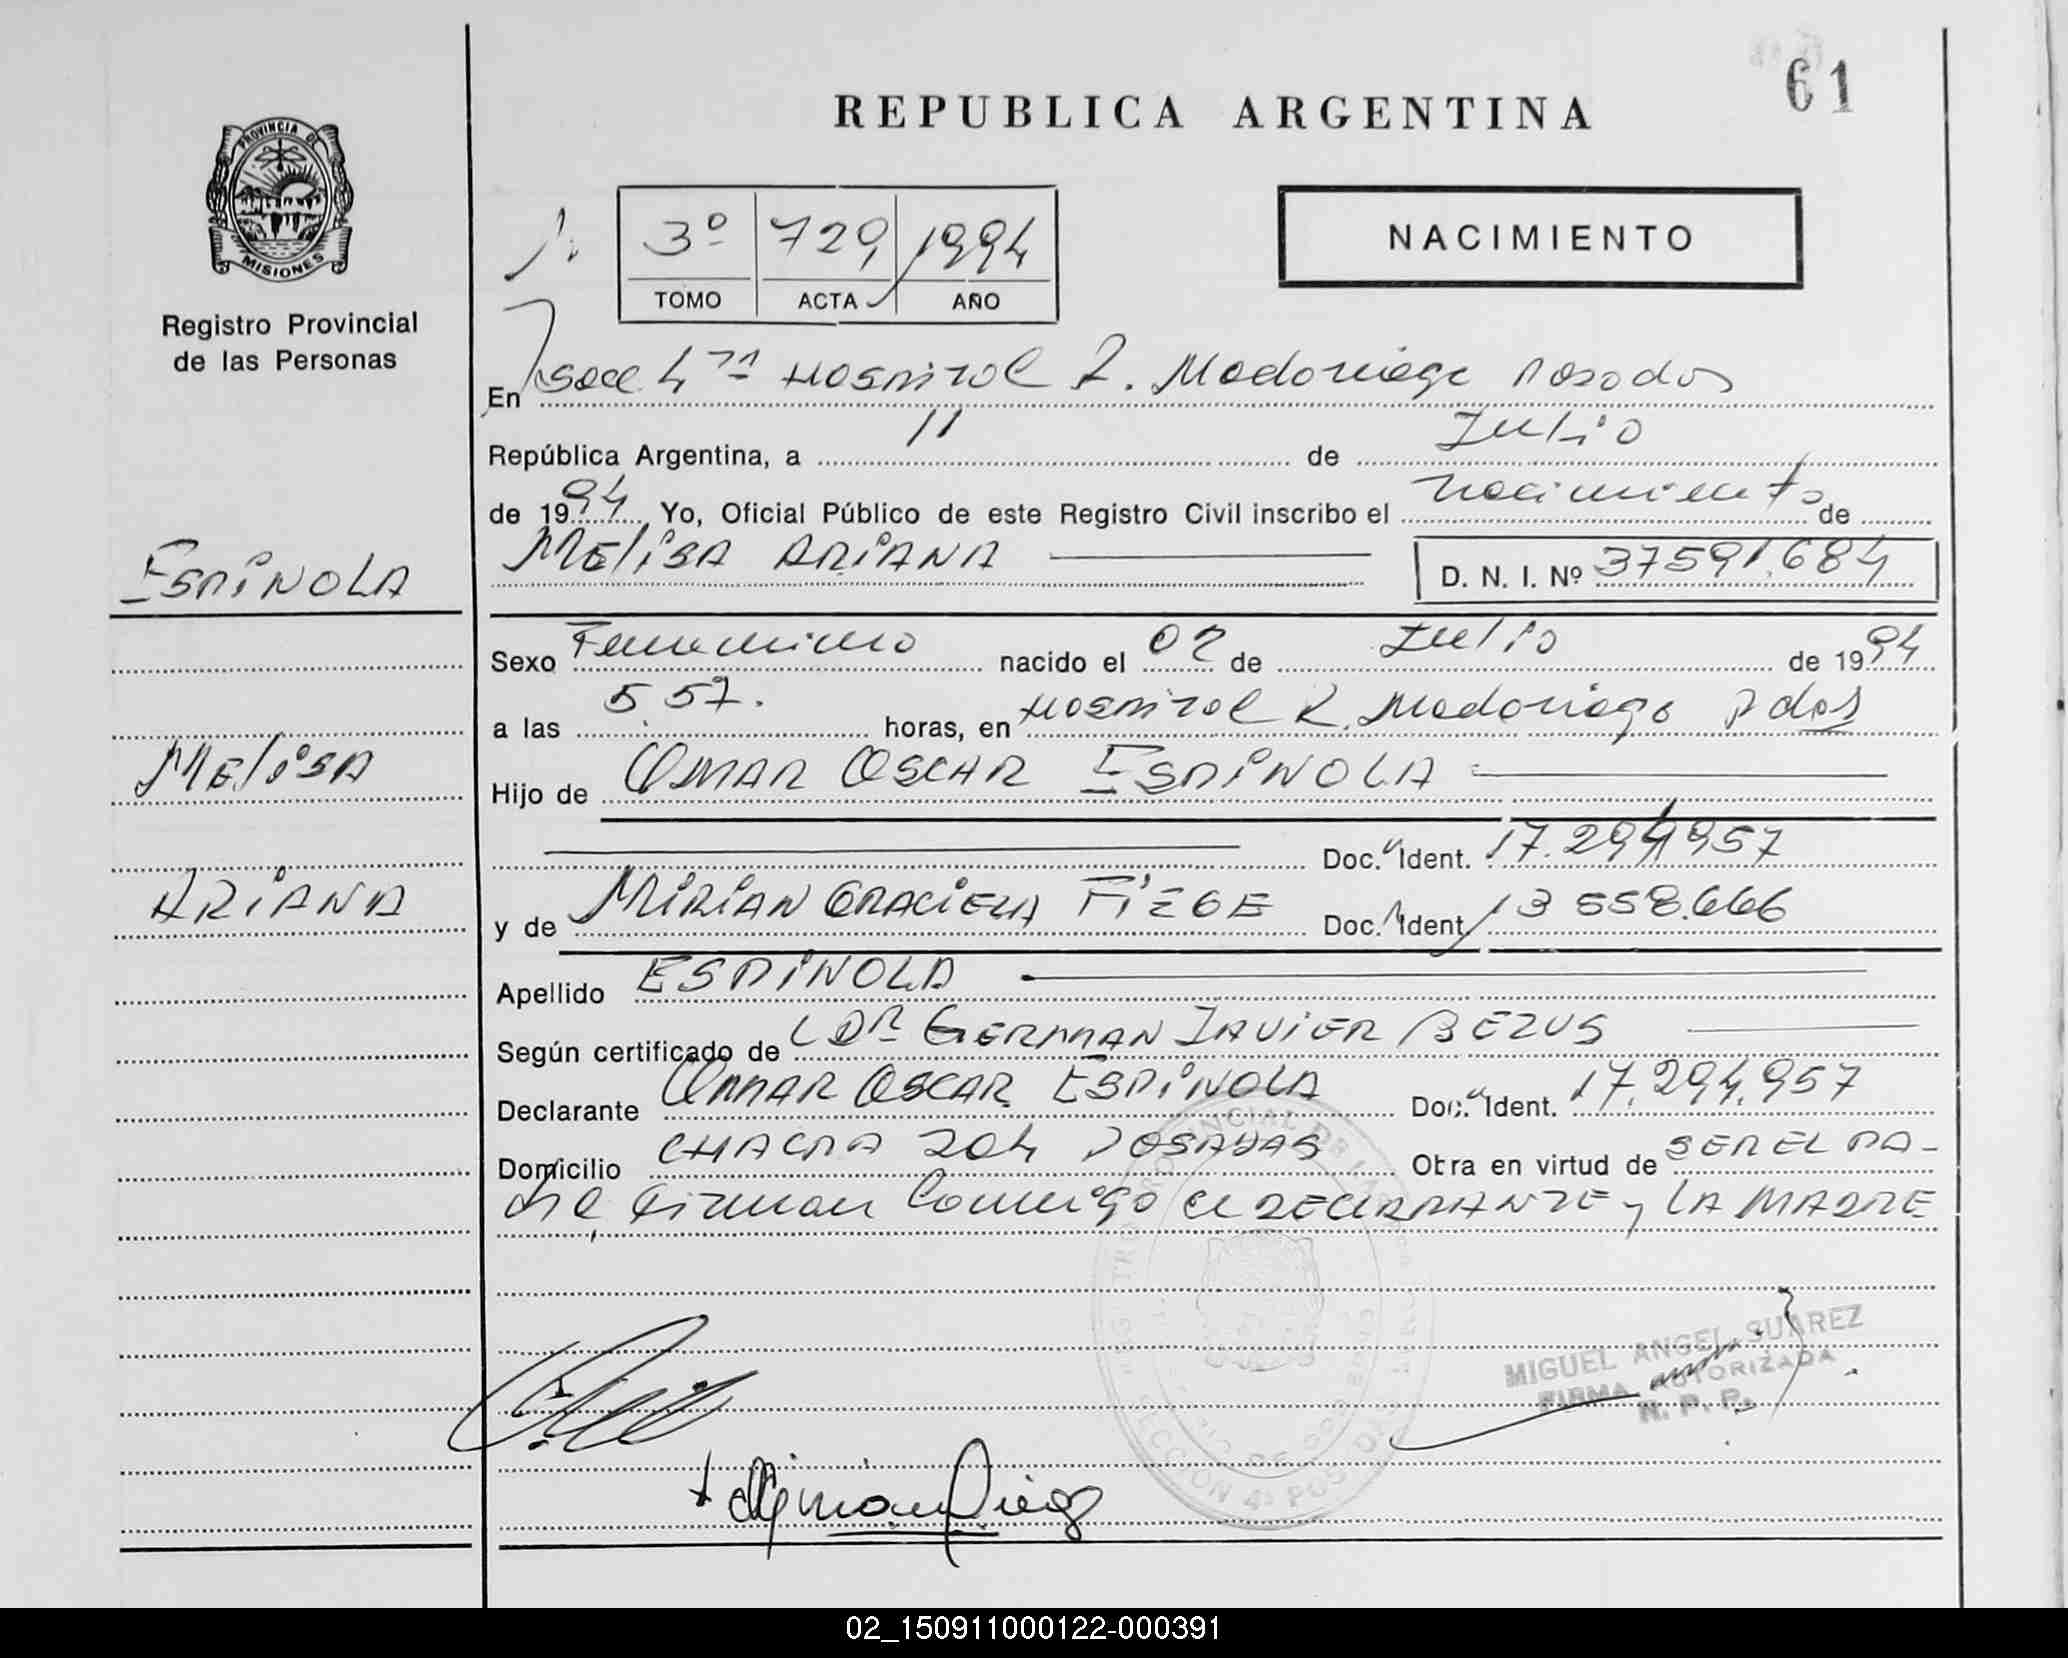 61
REPUBLICA ARGENTINA
PROVINCIA DE
MISIONES
Registro Provincial
de las Personas
3º 729 1994
TOMO ACTA AÑO
NACIMIENTO
En Secc 4ta Hospital R. Madariaga Posadas
República Argentina, a 11 de Julio
de 1994 Yo, Oficial Público de este Registro Civil inscribo el nacimiento de
MELISA ARIANA D. N. I. Nº 37591.684
ESPINOLA
MELISA
ARIANA
Sexo Femenino nacido el 02 de Julio de 1994
a las 5.57. horas, en Hospital R. Madariaga Pdas
Hijo de OMAR OSCAR ESPINOLA
Doc. Ident. 17.294957
y de MIRIAN GRACIELA FIEGE Doc. Ident. 13 558.666
Apellido ESPINOLA
Según certificado de LDR GERMAN JAVIER BEZUS
Declarante OMAR OSCAR ESPINOLA Doc. Ident. 17.294.957
Domicilio CHACRA 204 POSADAS Obra en virtud de SER EL PA-
dre, Firman Conmigo el DECLARANTE y LA MADRE
MIGUEL ANGEL SUAREZ
FIRMA AUTORIZADA
R. P. P.
02_150911000122-000391